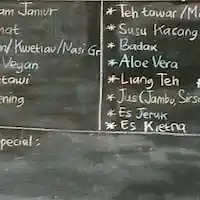 am Jamur
mat
en/Kwetiau/Nasi Gr
Veyan
tawi
ening
pecial :
* Teh tawar/Ma
* Susu Kacang
* Badak
* Aloe Vera
* Liang Teh
* Jus (Jambu, Sirsa
* Es Jeruk
* Es Kietna